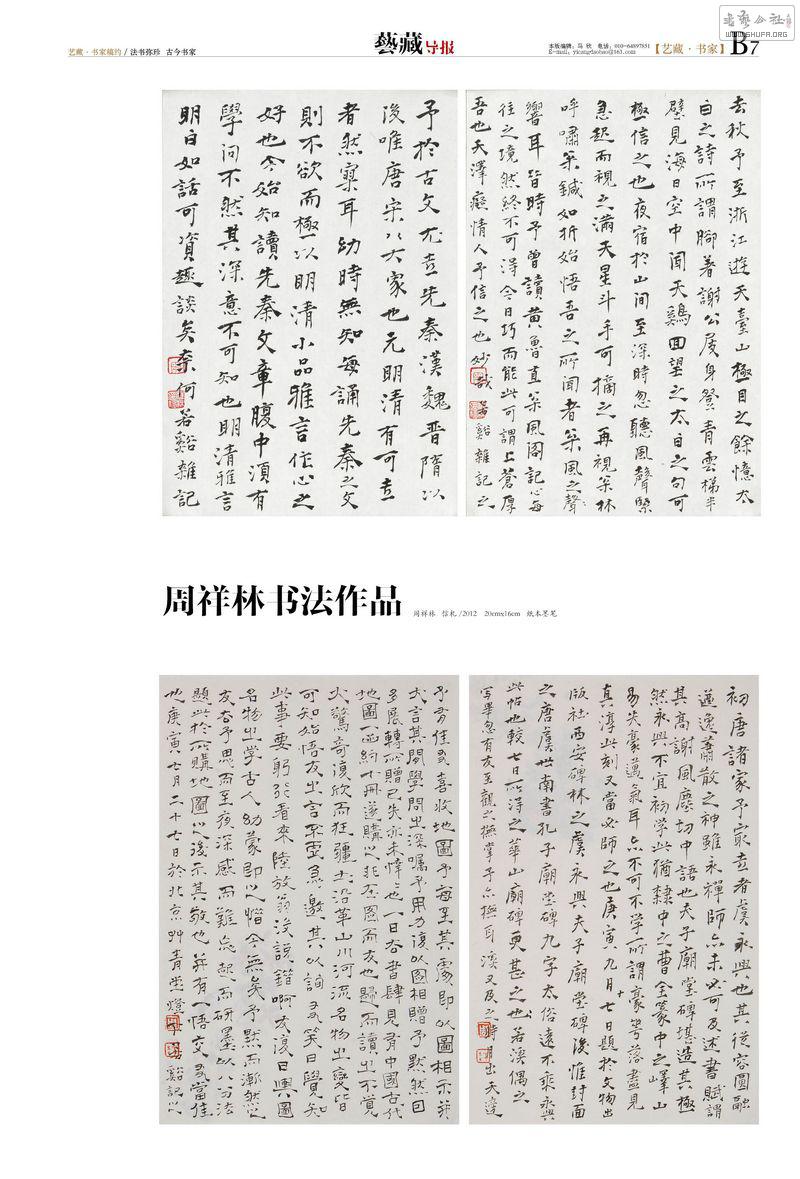 書藝公社
WWW.SHUFA.ORG
艺藏·书家稿约/法书弥珍 古今书家
藝藏导报
本版编辑：马欣 电话：010-64897851
E-mail：yicangdaobao@163.com
【艺藏·书家】
B7
去秋予至浙江遊天臺山極目之餘憶太
白之詩所謂腳著謝公屐身登青雲梯半
壁見海日空中聞天鷄回望之太白之句可
極信之也夜宿於山间至深時忽聽風聲緊
急起而視之滿天星斗手可摘之再視林
呼嘯葉鍼如折始悟吾之所聞者風之聲
響耳皆時予曾讀黄魯直風阁記心每
往之境然終不可得今日巧而能此可謂上蒼厚
吾也天澤癡情人予信之也妙哉若谿雜記之
予於古文尤喜先秦漢魏晋隋以
後唯唐宋八大家也元明清有可喜
者然寡耳幼時無知每誦先秦之文
則不欲而極以明清小品雅言作心之
好也今始知讀先秦文章腹中須有
學问不然其深意不可知也明清雅言
明白如話可資趣談矣奈何若谿雜記
周祥林书法作品
周祥林 信札/2012 20cmx16cm 纸本墨笔
初唐諸家予最喜者虞永興也其從容圓融
蕭散之神雖永禪師亦未必可及述書賦謂
其高謝風塵切中語也夫子廟堂碑堪造其極
然永興不宜初學此猶隸中之曹全篆中之嶧山
易失豪邁氣耳亦不可不學所謂豪華落盡見
真淳此刻又當必師之也庚寅九月十七日題於文物出
版社西安碑林之虞永興夫子廟堂碑後惟封面
之唐虞世南書孔子廟堂碑九字太俗遠不乘永興
此帖也較七日所得之華山廟碑更甚之也若谿偶之
寫畢忽有友至觀之撫掌予亦撫耳溪又及之時月出天邊
予有佳友喜收地圖予每至其處即以圖相示并
大言其閱學問出深囑予用力後以图相贈予默然回
多展轉所贈已失亦未惮也一日各書肆見有中國古代
地圖一函約十冊遂購之非吾图而友也歸而讀之不覺
大驚奇復欣而狂疆土沿革山川河流名物之變皆
可知始悟友之言至急邀其以詢友笑曰覺知
此事要躬行看來陸放翁没説錯啊友復曰輿圖
名物之學古人幼蒙即以之惜今無矣予默而漸然之
友去予思而至夜深感而難忘起而研墨以八分法
題此於所購地圖之後示其敬也并有一悟交友當佳
也庚寅七月二十七日於北京艸青堂燈下若谿記之